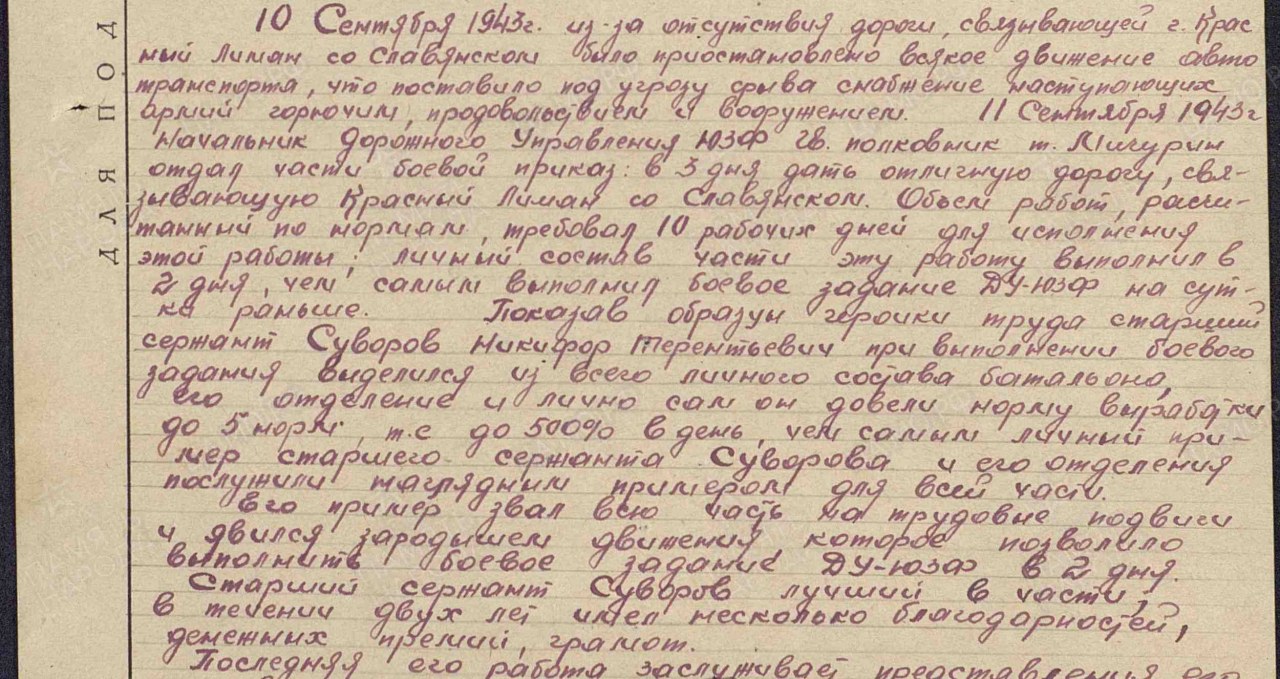 10 Сентября 1943г. из-за отсутствия дороги, связывающей г. Крас
ный Лиман со Славянском было приостановлено всякое движение авто
транспорта, что поставило под угрозу срыва снабжение наступающих
армий горючим, продовольствием и вооружением. 11 Сентября 1943г
Начальник Дорожного Управления ЮЗФ Гв. полковник т. Мичурин
отдал части боевой приказ: в 3 дня дать отличную дорогу, свя-
зывающую Красный Лиман со Славянском. Объем работ, расчи-
танный по нормам, требовал 10 рабочих дней для исполнения
этой работы; личный состав части эту работу выполнил в
2 дня, чем самым выполнил боевое задание ДУ-ЮЗФ на сут-
ки раньше. Показав образцы героики труда старший
сержант Суворов Никифор Терентьевич при выполнении боевого
задания выделился из всего личного состава батальона,
его отделение и лично сам он довели норму выработки
до 5 норм, т.е до 500% в день, чем самым личный при-
мер старшего сержанта Суворова и его отделения
послужили наглядным примером для всей части.
Его пример звал всю часть на трудовые подвиги
и явился зародышем движения, которое позволило
выполнить боевое задание ДУ-ЮЗФ в 2 дня.
Старший сержант Суворов лучший в части,
в течении двух лет имел несколько благодарностей,
денежных премий, грамот.
Последняя его работа заслуживает представления его
ДЛЯ ПОД